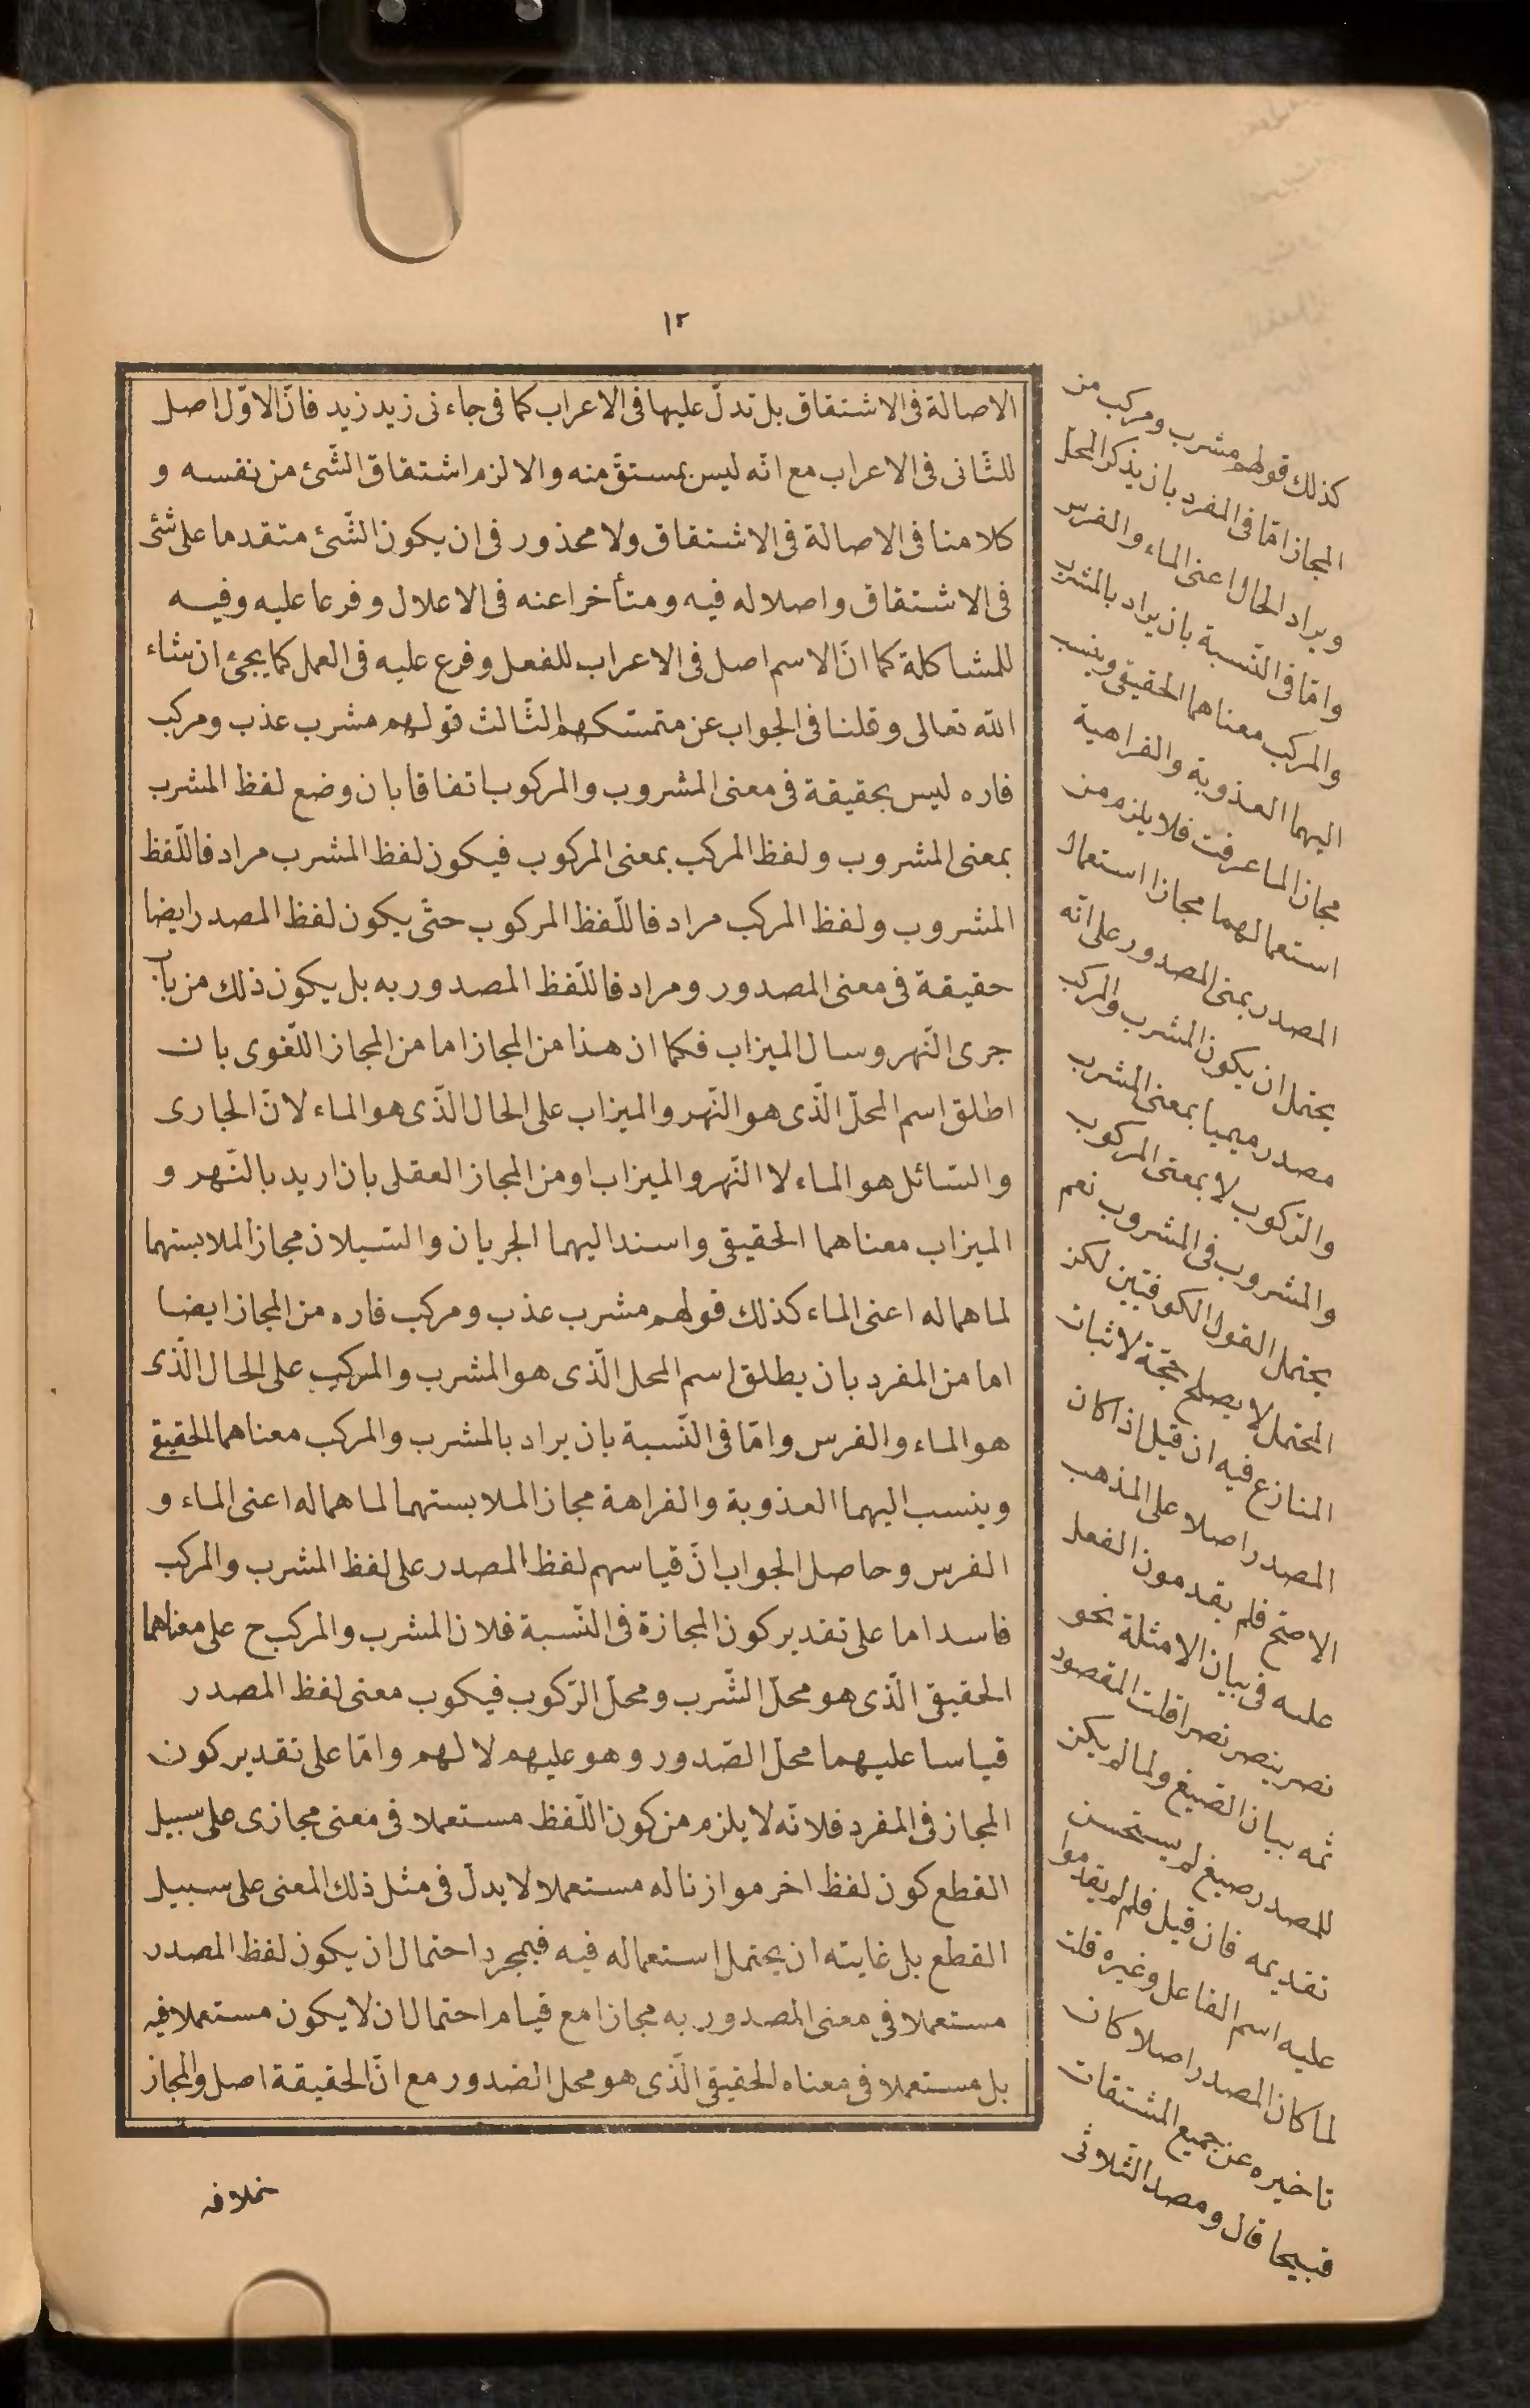 ١٢
الاصالة فى الاشتقاق بل تدلّ عليها فى الاعراب كما فى جاءنى زيد زيد فانّ الاوّل اصل
للثّانى فى الاعراب مع انّه ليس بمستقّ منه والا لزم اشتقاق الشّئ من نفسه و
كلامنا فى الاصالة فى الاشتقاق ولا محذور فى ان يكون الشّئ متقدما على شئ
فى الاشتقاق واصلا له فيه ومتأخرا عنه فى الاعلال وفرعا عليه وفيه
للمشاكلة كما انّ الاسم اصل فى الاعراب للفعل وفرع عليه فى العمل كما يجئ ان شاء
الله تعالى وقلنا فى الجواب عن متمسّكهم الثّالث قولهم مشرب عذب ومركب
فاره ليس بحقيقة فى معنى المشروب والمركوب اتفاقا بان وضع لفظ المشرب
بمعنى المشروب ولفظ المركب بمعنى المركوب فيكون لفظ المشرب مرادفا للّفظ
المشروب ولفظ المركب مرادفا للّفظ المركوب حتّى يكون لفظ المصدر ايضا
حقيقة فى معنى المصدور ومرادفا للّفظ المصدور به بل يكون ذلك من باب
جرى النّهر وسال الميزاب فكما ان هذا من المجاز اما من المجاز اللّغوى بان
اطلق اسم المحلّ الّذى هو النّهر والميزاب على الحال الّذى هو الماء لانّ الجارى
والسّائل هو الماء لا النّهر والميزاب او من المجاز العقلى بان اريد بالنّهر و
الميزاب معناهما الحقيقى واسند اليهما الجريان والسّيلان مجازا لملابستهما
لما هما له اعنى الماء كذلك قولهم مشرب عذب ومركب فاره من المجاز ايضا
اما من المفرد بان يطلق اسم المحل الّذى هو المشرب والمركب على الحال الّذى
هو الماء والفرس وامّا فى النّسبة بان يراد بالمشرب والمركب معناهما الحقيقى
وينسب اليهما العذوبة والفراهة مجازا لملابستهما لما هما له اعنى الماء و
الفرس وحاصل الجواب انّ قياسهم لفظ المصدر على لفظ المشرب والمركب
فاسد اما على تقدير كون المجازة فى النّسبة فلان المشرب والمركب ح على معناهما
الحقيقى الّذى هو محلّ الشّرب ومحلّ الرّكوب فيكوب معنى لفظ المصدر
قياسا عليهما محلّ الصّدور وهو عليهم لا لهم وامّا على تقدير كون
المجاز فى المفرد فلانّه لا يلزم من كون اللّفظ مستعملا فى معنى مجازى على سبيل
القطع كون لفظ اخر موازنا له مستعملا لا يدلّ فى مثل ذلك المعنى على سبيل
القطع بل غايته ان يحتمل استعماله فيه فبمجرد احتمال ان يكون لفظ المصدر
مستعملا فى معنى المصدور به مجازا مع قيام احتمال ان لا يكون مستعملا فيه
بل مستعملا فى معناه الحقيقى الّذى هو محل الصّدور مع انّ الحقيقة اصل والمجاز
كذلك قولهم مشرب ومركب من
المجاز امّا فى المفرد بان يذكر المحل
ويراد الحال اعنى الماء والفرس
وامّا فى النّسبة بان يراد بالمشرب
والمركب معناهما الحقيقى وينسب
اليهما العذوبة والفراهية
مجازا لما عرفت فلا يلزم من
استعمالهما مجازا استعمال
المصدر بمعنى المصدور على انّه
يحتمل ان يكون المشرب والمركب
مصدر ميميا بمعنى الشرب
والرّكوب لا بمعنى المركوب
والمشروب فى المشروب نعم
يحتمل القول الكوفيّين لكن
المحتمل لا يصلح حجّة لاثبات
المنازع فيه ان قيل اذا كان
المصدر اصلا على المذهب
الاصحّ فلم يقدمون الفعل
عليه فى بيان الامثلة نحو
نصر ينصر نصرا قلت المقصود
ثمه بيان الصّيغ ولما لم يكن
للمصدر صيغ لم يستحسن
تقديمه فان قيل فلم لم يقدموا
عليه اسم الفاعل وغيره قلت
لما كان المصدر اصلا كان
تاخيره عن جميع المشتقات
قبيحا قال ومصدر الثّلاثى
بخلافه